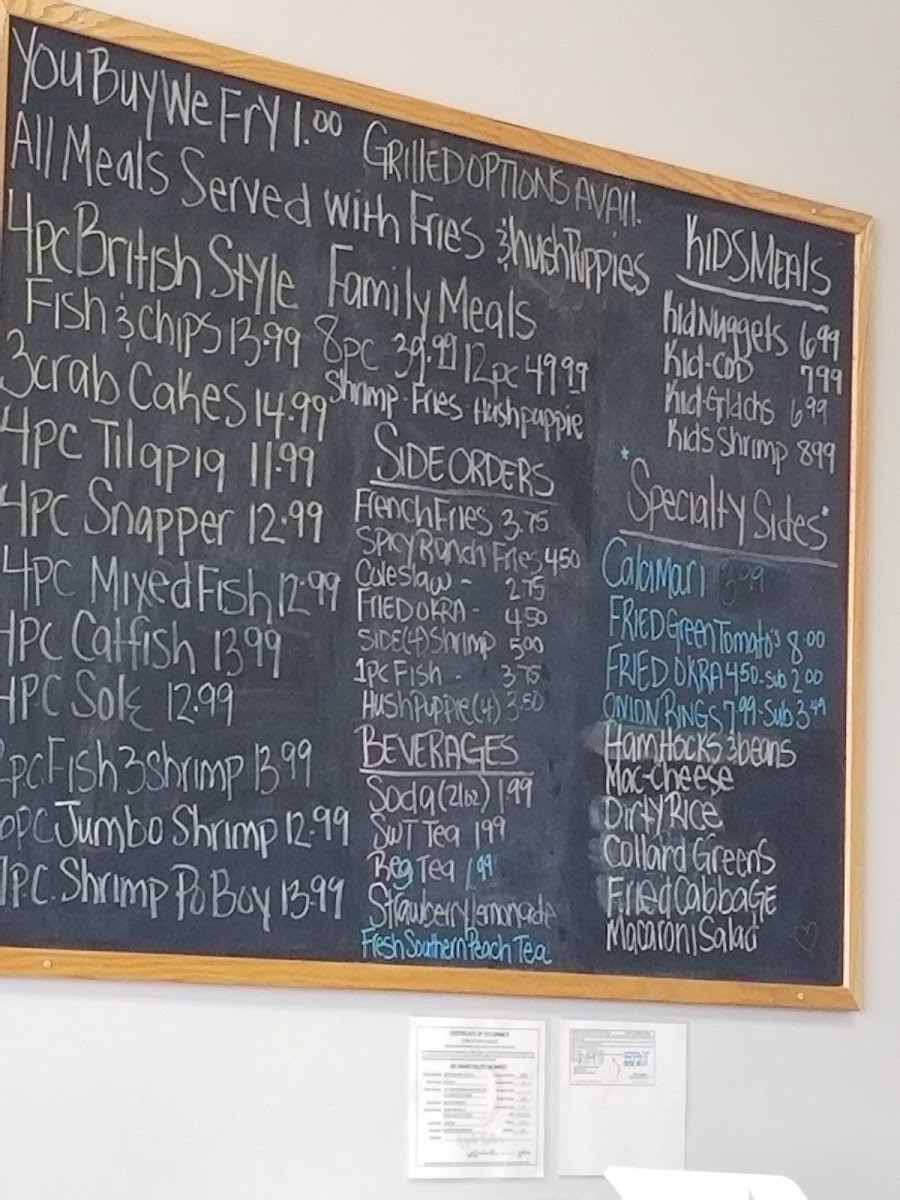 You Buy We Fry 1.00
GRILLED OPTIONS AVAIL.
All Meals Served with Fries & hush Puppies
4pc British Style
Fish & chips 13.99
3 crab Cakes 14.99
4pc Tilapia 11.99
4pc Snapper 12.99
4pc Mixed Fish 12.99
4pc Catfish 13.99
4pc Sole 12.99
2pc. Fish 3 Shrimp 13.99
pc Jumbo Shrimp 12.99
1pc. Shrimp Po Boy 13.99
Family Meals
8pc 39.99 12pc 49.99
Shrimp - Fries - Hushpuppie
SIDE ORDERS
French Fries 3.75
Spicy Ranch Fries 4.50
Coleslaw - 2.75
FRIED OKRA - 4.50
SIDE (4) Shrimp 5.00
1pc Fish - 3.75
Hush Puppie (4) 3.50
BEVERAGES
Soda (21oz) 1.99
SWT Tea 1.99
Reg Tea 1.99
Strawberry lemonade
Fresh Southern Peach Tea
KIDS MEALS
Kid Nuggets 6.99
Kid-COD 7.99
Kid-Grldchs 6.99
Kids Shrimp 8.99
*Specialty Sides*
Calamari
FRIED Green Tomato's 8.00
FRIED OKRA 4.50-sub 2.00
ONION RINGS 7.99-Sub 3.49
Ham Hocks & beans
Mac-Cheese
Dirty Rice
Collard Greens
Fried Cabbage
Macaroni Salad
CERTIFICATE OF OCCUPANCY